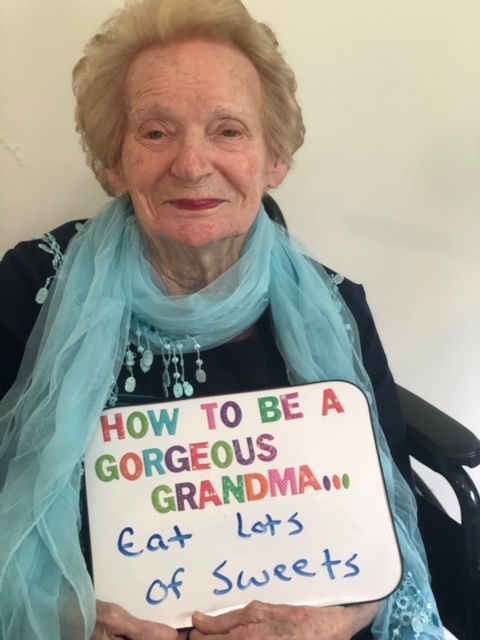 HOW TO BE A
GORGEOUS
GRANDMA...
Eat Lots
of Sweets